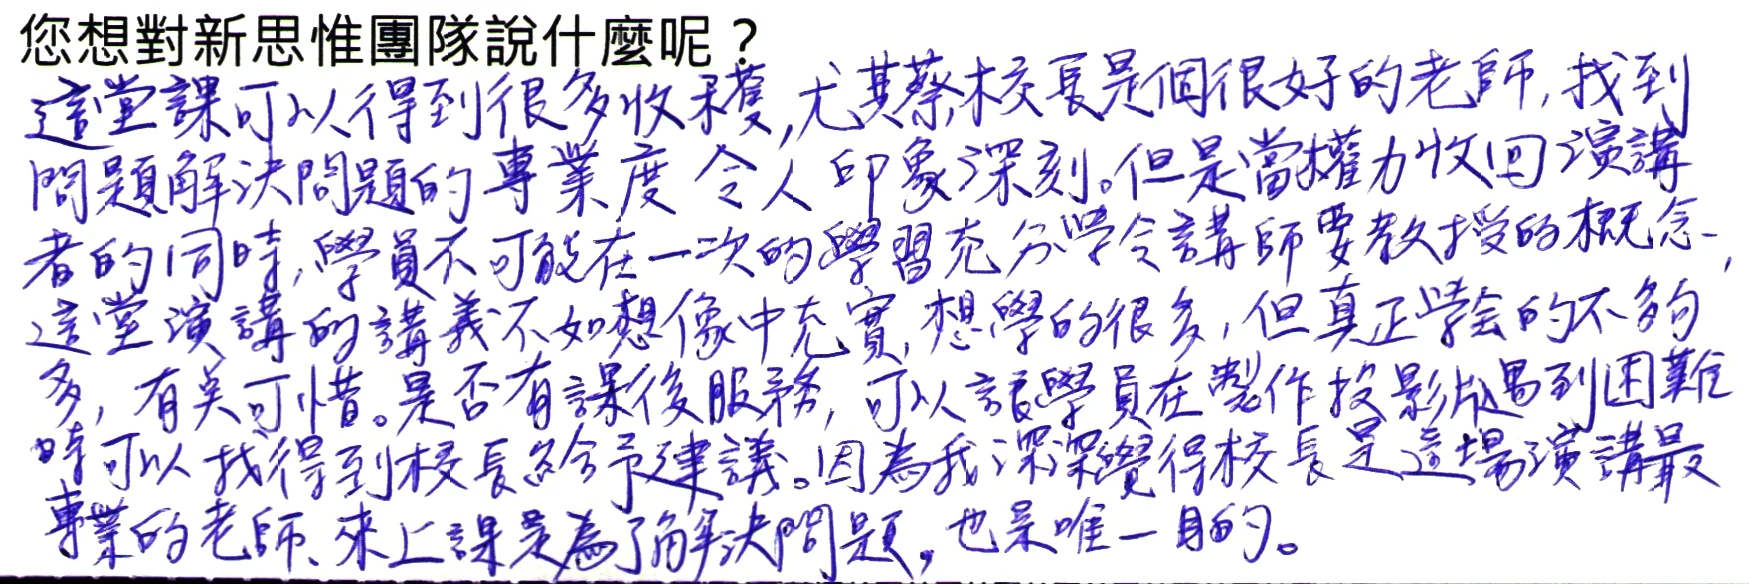 您想對新思惟團隊說什麼呢？
這堂課可以得到很多收穫,尤其蔡校長是個很好的老師,找到
問題解決問題的專業度令人印象深刻。但是當權力收回演講
者的同時,學員不可能在一次的學習充分学会講師要教授的概念,
這堂演講的講義不如想像中充實,想學的很多,但真正学会的不夠
多,有点可惜。是否有課後服務,可以讓學員在製作投影片遇到困難
時可以找得到校長給予建議。因為我深深覺得校長是這場演講最
專業的老師、來上課是為了解決問題,也是唯一目的。